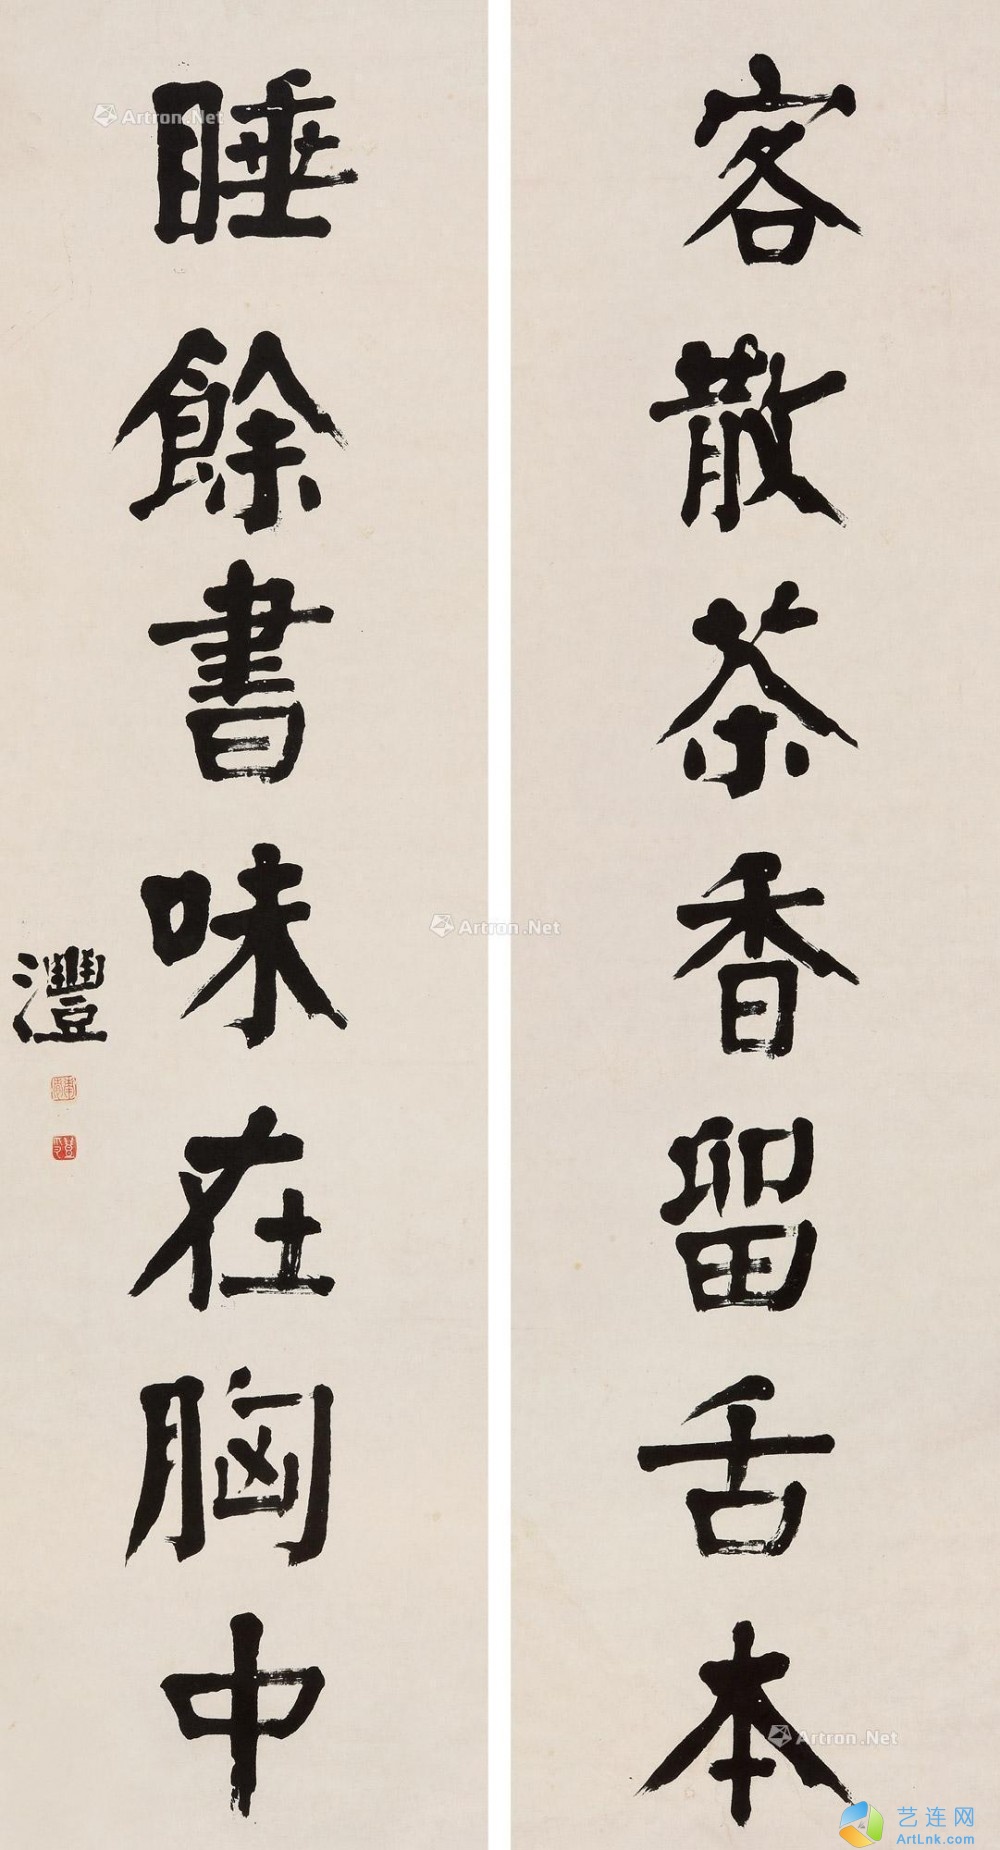 客散茶香留舌本
睡餘書味在胸中
灃
Artron.Net
Artron.Net
Artron.Net
艺连网
ArtLnk.com